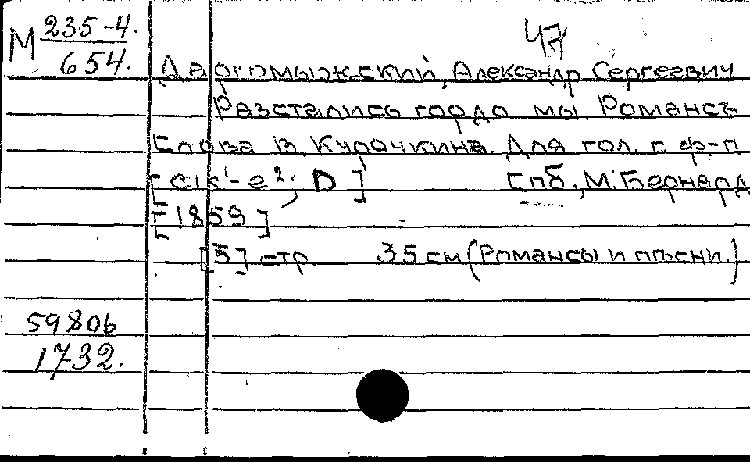 М 235-4.
654.
47
Даргомыжский, Александр Сергеевич
Разстались гордо мы. Романсъ
Слова В. Курочкина. Для гол. с ф-п.
[cis¹-e²; D] Спб., М. Бернард
[1859]
[5] стр. 35 см (Романсы и пѣсни.)
5980b
1732.